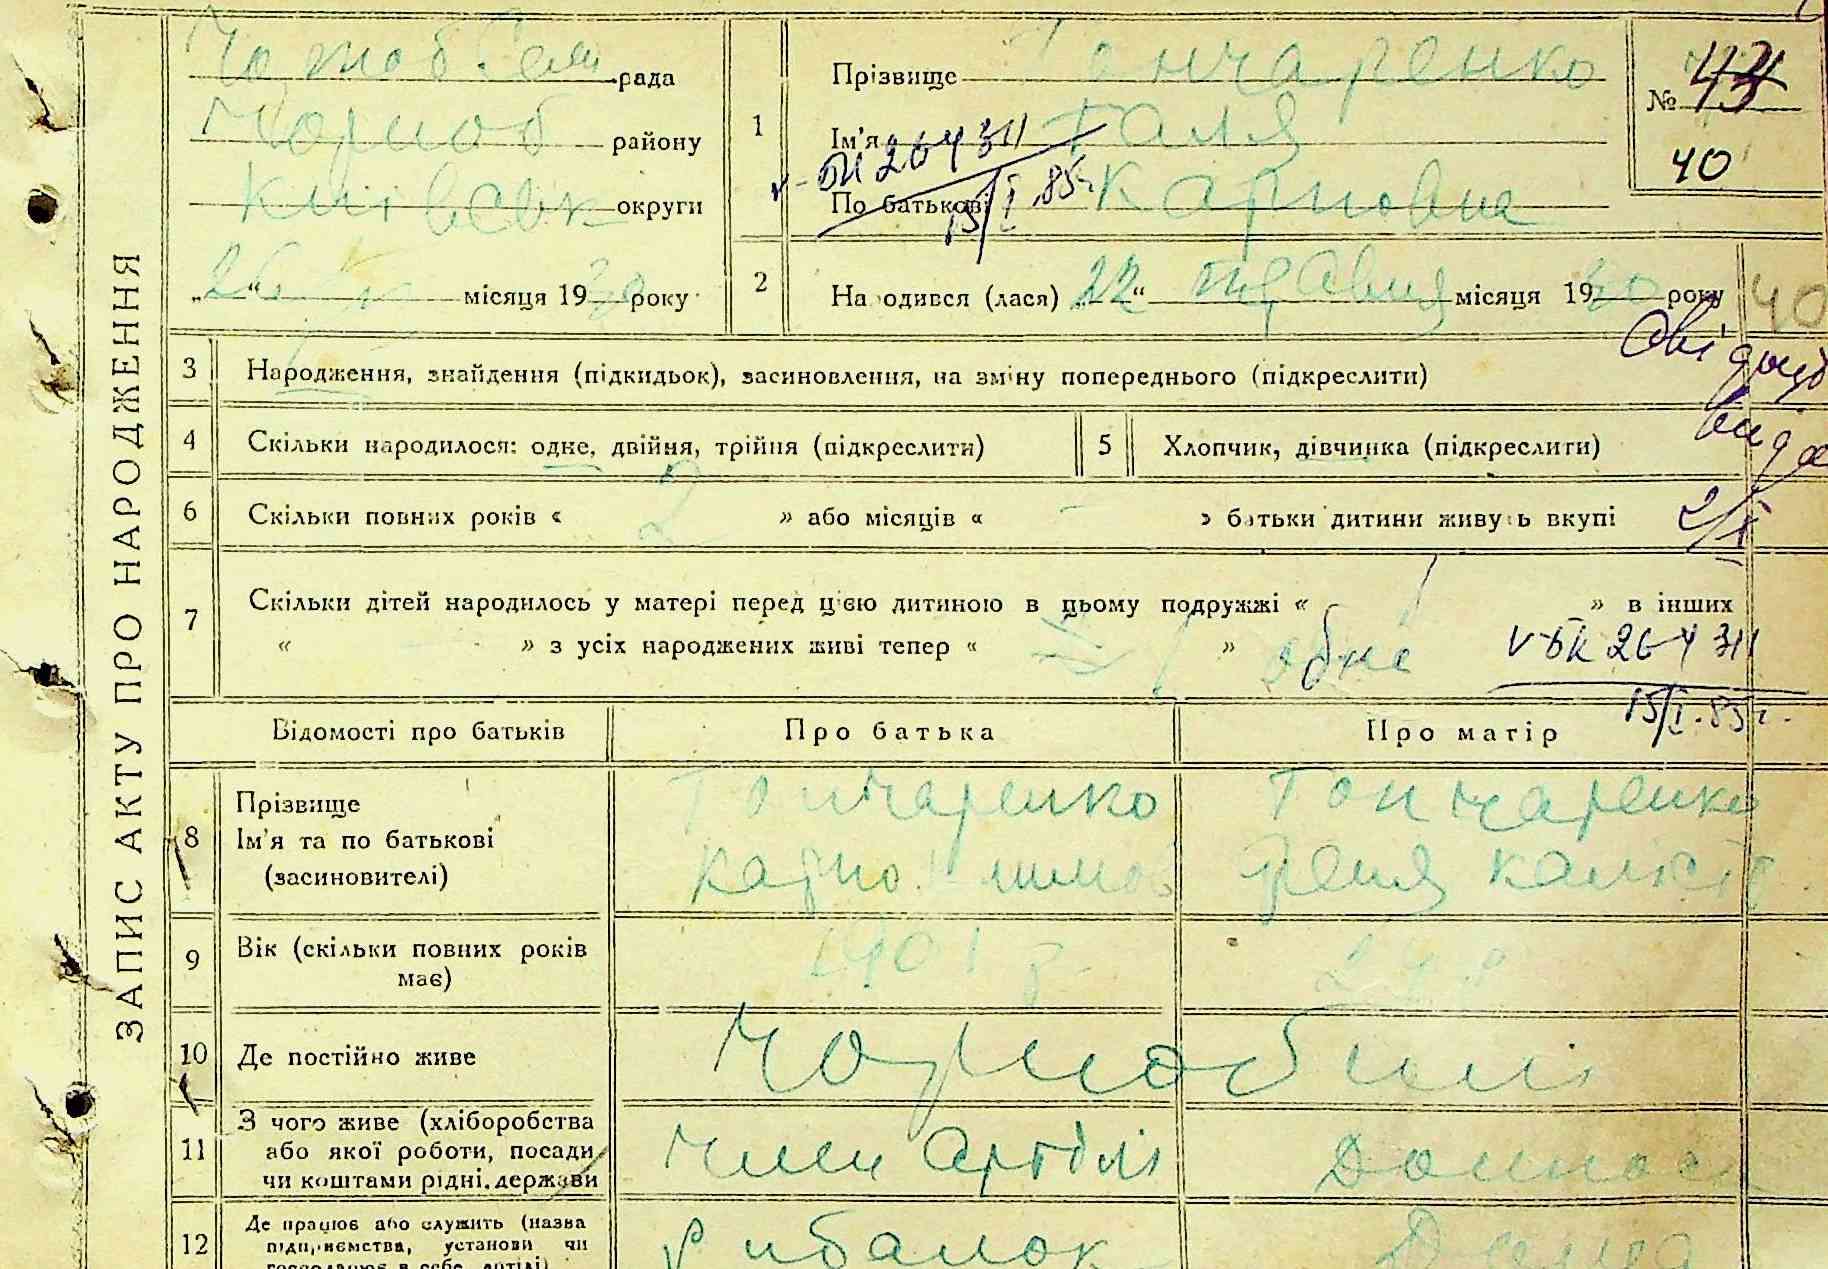 ЗАПИС АКТУ ПРО НАРОДЖЕННЯ
рада
Чорноб району
Київськ округи
„26“ місяця 1930 року
1
Прізвище Гончаренко
Ім'я Галя
По батькові Карповна
БК 264311
15/I.85г.
№ 43
40
2
Народився (лася) „22“ травня місяця 1930 року
40
3
Народження, знайдення (підкидьок), засиновлення, на зміну попереднього (підкреслити)
4
Скільки народилося: одне, двійня, трійня (підкреслити)
5
Хлопчик, дівчинка (підкреслити)
6
Скільки повних років « 2 » або місяців « - » батьки дитини живуть вкупі
7
Скільки дітей народилось у матері перед цією дитиною в цьому подружжі « » в інших
« - » з усіх народжених живі тепер « »
V-БК 264311
15/I.85г.
Відомості про батьків
Про батька
Про матір
8
Прізвище
Ім'я та по батькові
(засиновителі)
Гончаренко
Карпо
Гончаренко
9
Вік (скільки повних років
має)
1901 р
24 р
10
Де постійно живе
Чорнобилі
11
З чого живе (хліборобства
або якої роботи, посади,
чи коштами рідні, держави
Член Артілі
Домгос
12
Де працює або служить (назва
підприємства, установи чи
господарює в себе, артілі)
Рибалок